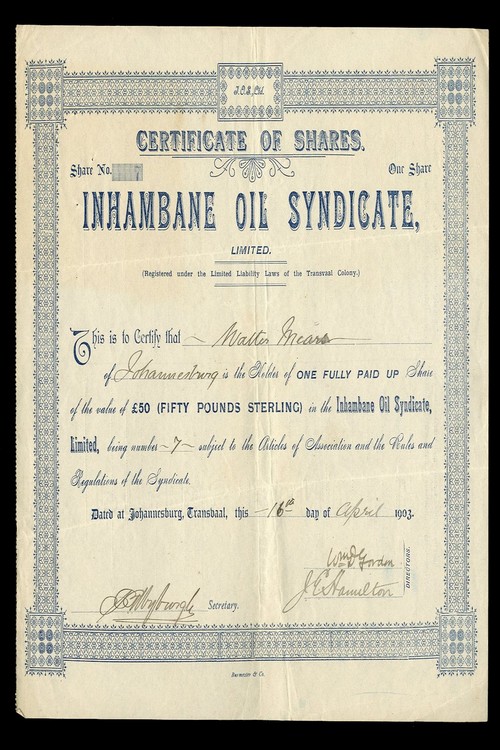 I.O.S. Ltd.
CERTIFICATE OF SHARES.
Share No. 7 One Share
INHAMBANE OIL SYNDICATE,
LIMITED.
(Registered under the Limited Liability Laws of the Transvaal Colony.)
This is to Certify that Walter Mears
of Johannesburg is the Holder of ONE FULLY PAID UP Share
of the value of £50 (FIFTY POUNDS STERLING) in the Inhambane Oil Syndicate,
Limited, being number 7 subject to the Articles of Association and the Rules and
Regulations of the Syndicate.
Dated at Johannesburg, Transvaal, this 16th day of April 1903.
Wm D Gordon
J C Hamilton
DIRECTORS.
Secretary.